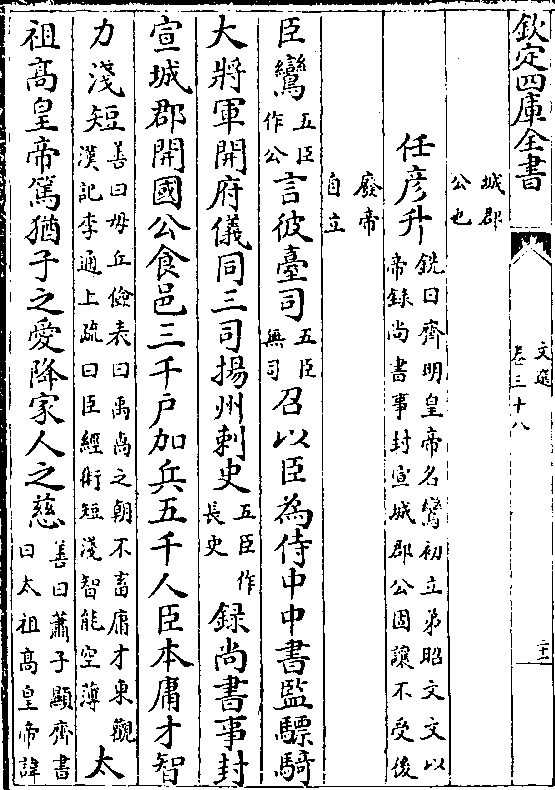 欽定四庫全書
文選
卷三十八
城郡公也
任彦升銑曰齊明皇帝名鸞初立弟昭文文以帝録尚書事封宣城郡公固讓不受後
廢帝自立
臣鸞五臣作公言彼臺司五臣無司召以臣為侍中中書監驃騎
大將軍開府儀同三司揚州刺史五臣作長史録尚書事封
宣城郡開國公食邑三千户加兵五千人臣本庸才智
力淺短善曰毋丘儉表曰禹卨之朝不畜庸才東觀漢記李通上疏曰臣經術短淺智能空薄太
祖髙皇帝篤猶子之愛降家人之慈善曰蕭子顯齊書曰太祖髙皇帝諱